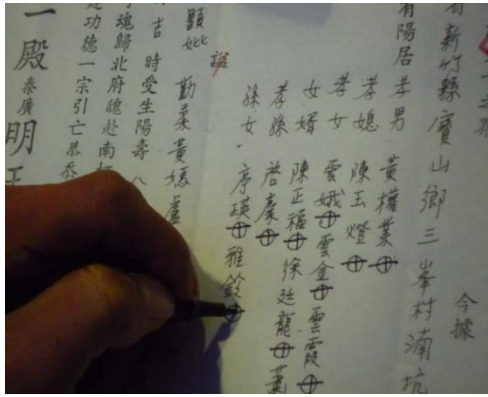 今據
新竹縣寶山鄉三峯村湳坑
有陽居 孝男 黃權業
孝媳 陳玉燈
孝女 雲娥 雲金 雲霞
女婿 陳正福 徐廷龍
孝孫 啓康
孫女 序瑛 雅鈴
顯妣 諡 勤柔黃媽盧
吉 時受生陽壽 八
魂歸北府魄赴南
功德一宗引亡恭
一殿 秦廣 明王